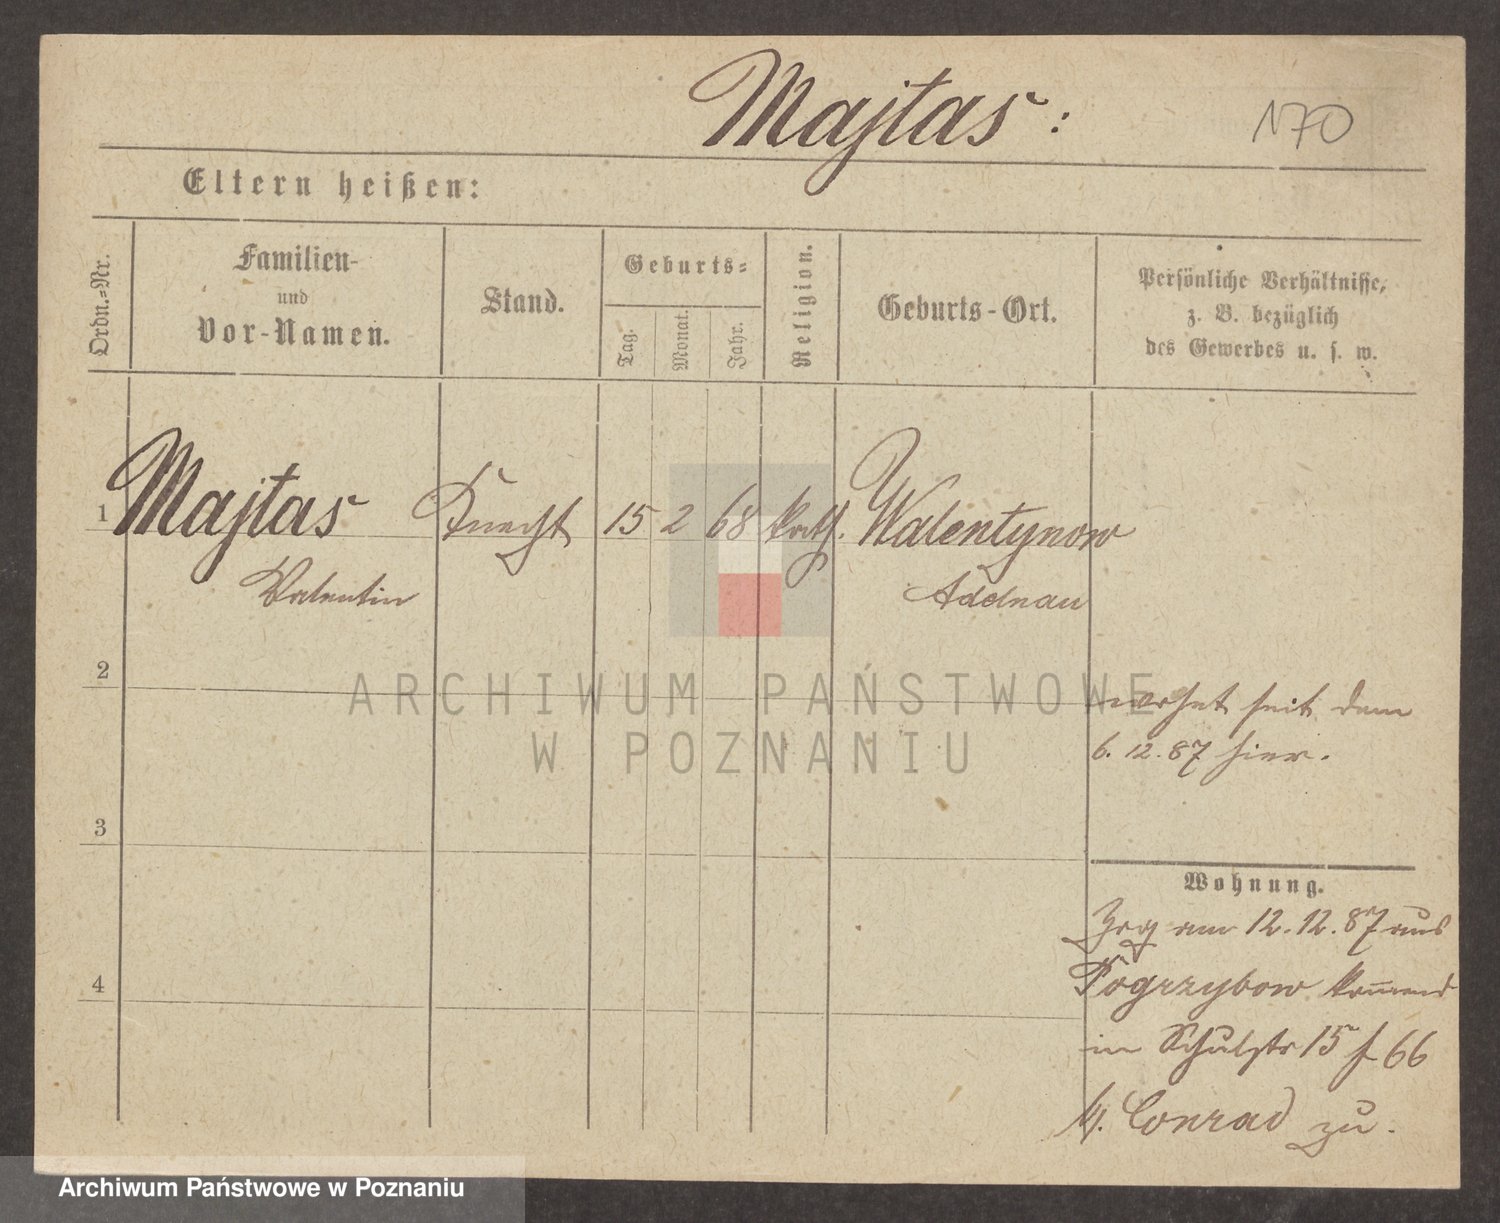 Majtas:
170
Eltern heißen:
Ordn.-Nr.
Familien-
und
Vor-Namen.
Stand.
Geburts-
Tag.
Monat.
Jahr.
Religion.
Geburts-Ort.
Persönliche Verhältnisse,
z. B. bezüglich
des Gewerbes u. s. w.
1 Majtas Knecht 15 2 68 kath. Walentynow
Valentin Adelnau
2
wohnt seit dem
6. 12. 87 hier.
3
Wohnung.
Zog am 12. 12. 87 aus
Pogrzybow kommend
4
in Schulstr 15 f 66
b/. Conrad zu.
ARCHIWUM PAŃSTWOWE
W POZNANIU
Archiwum Państwowe w Poznaniu